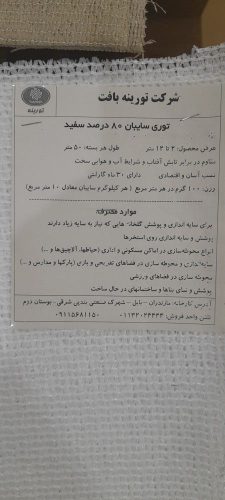 شرکت تورینه بافت
تورینه
توری سایبان ۸۰ درصد سفید
عرض محصول: ۲ تا ۱۲ متر طول هر بسته: ۵۰ متر
مقاوم در برابر تابش آفتاب و شرایط آب و هوایی سخت
نصب آسان و اقتصادی دارای ۳۰ ماه گارانتی
وزن: ۱۰۰ گرم در هر متر مربع (هر کیلوگرم سایبان معادل ۱۰ متر مربع)
موارد مصرف:
برای سایه اندازی و پوشش گلخانه هایی که نیاز به سایه زیاد دارند
پوشش و سایه اندازی روی استخرها
انواع محوطه‌سازی در اماکن مسکونی و اداری (حیاطها، آلاچیق‌ها و ...)
سایه‌اندازی و محوطه سازی در فضاهای تفریحی و بازی (پارکها و مدارس و ...)
محوطه سازی در فضاهای ورزشی
پوشش و نمای بناها و ساختمانهای در حال ساخت
آدرس کارخانه: مازندران - بابل - شهرک صنعتی بندپی شرقی - بوستان دوم
تلفن واحد فروش: ۰۱۱۳۲۰۲۴۴۴۳ / ۰۹۱۱۵۶۸۱۱۵۰